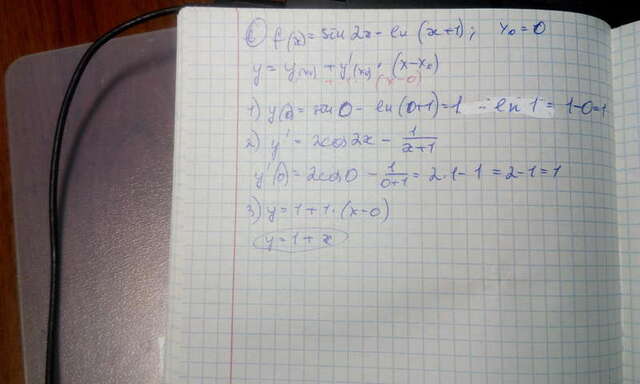 ⑥ f(x) = sin 2x - ln (x+1); x₀ = 0
y = y(x₀) + y'(x₀) · (x-x₀)
1) y(0) = sin 0 - ln (0+1) = 1 - ln 1 = 1-0=1
2) y' = 2cos 2x - 1/(x+1)
y'(0) = 2cos 0 - 1/(0+1) = 2·1-1 = 2-1=1
3) y = 1+1·(x-0)
y = 1+x